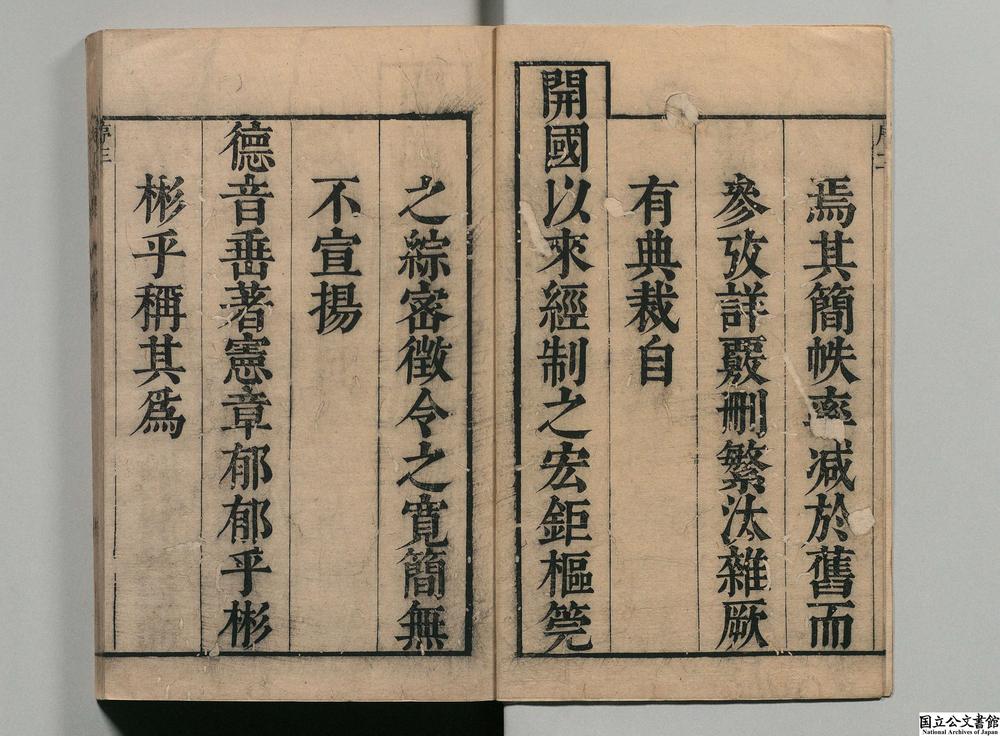 焉其簡帙率減於舊而
參攷詳覈删繁汰雜厥
有典裁自
開國以來經制之宏鉅樞筦
之綜密徵令之寬簡無
不宣揚
德音埀著憲章郁郁乎彬
彬乎稱其爲
序三
国立公文書館
National Archives of Japan